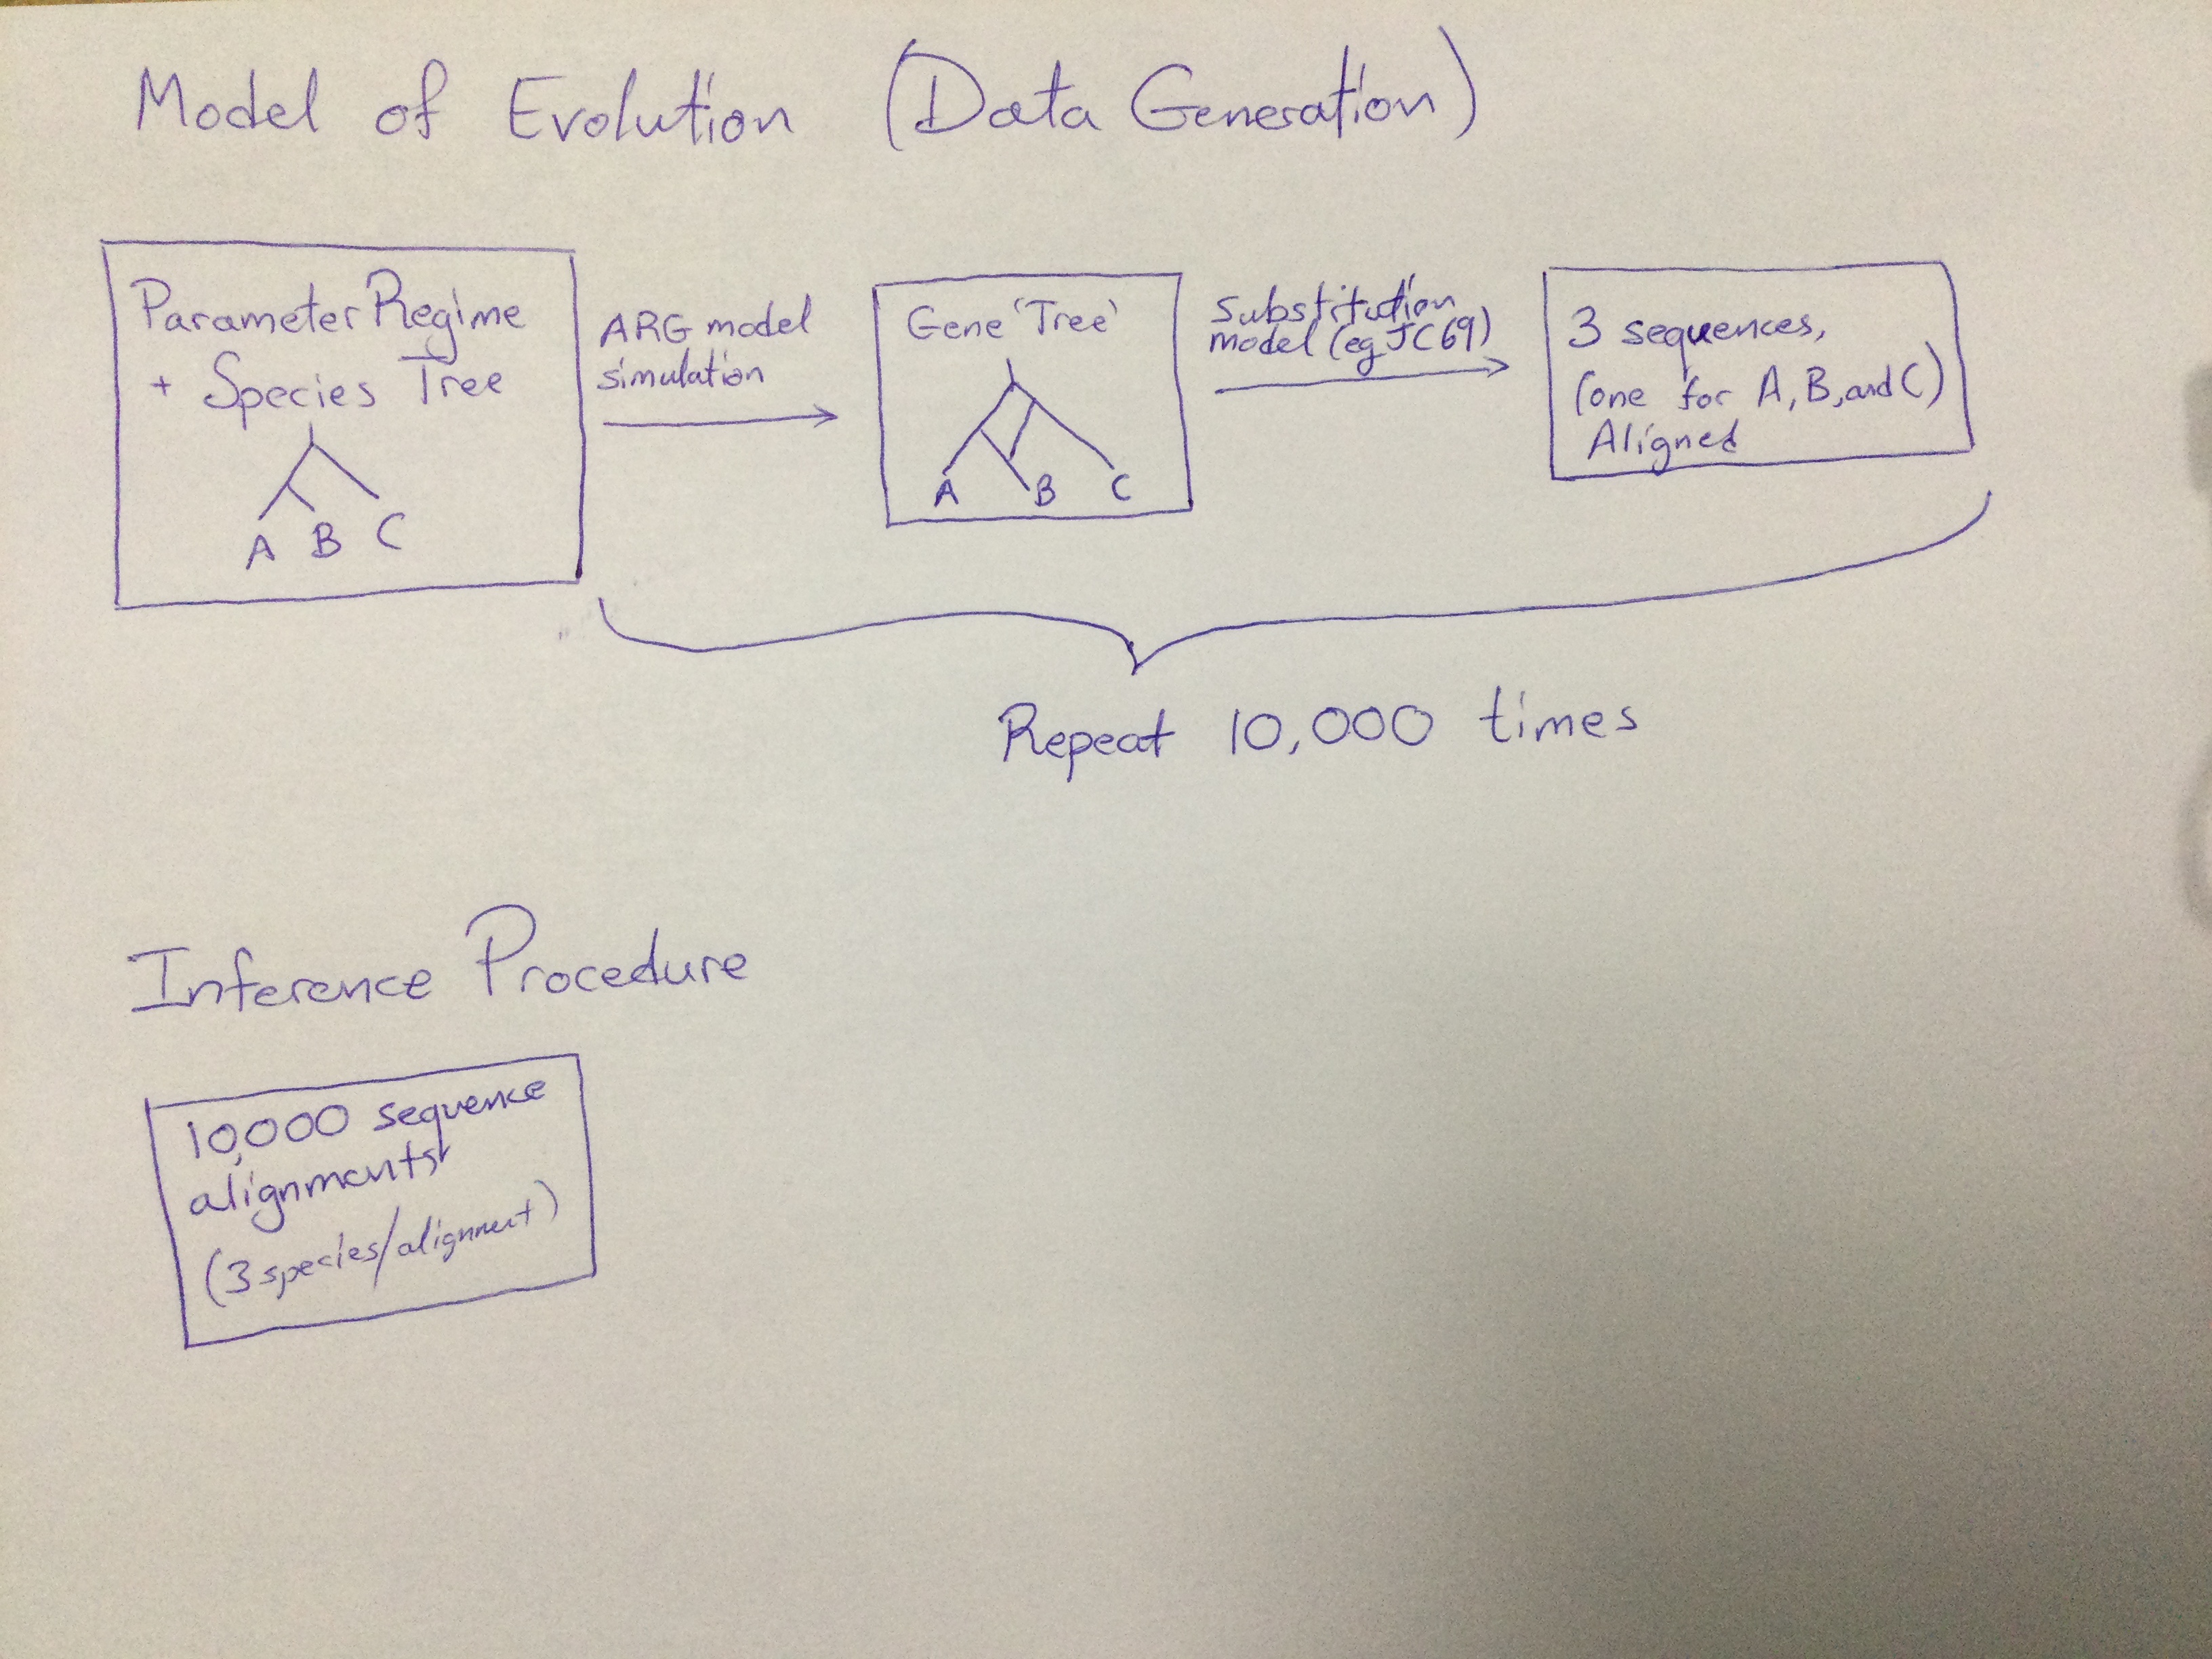 Model of Evolution (Data Generation)
Parameter Regime
+ Species Tree
A B C
ARG model
simulation
Gene 'Tree'
A B C
Substitution
model (eg JC69)
3 sequences,
(one for A, B, and C)
Aligned
Repeat 10,000 times
Inference Procedure
10,000 sequence
alignments
(3 species/alignment)